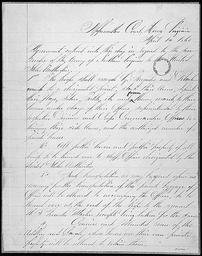 Appomattox Court House Virginia
April 10 1865
Agreement entered into this day in regard to the sur
render of the Army of Northern Virginia to the United
States Authorities
1st The troops shall march by Brigades and Detach
ments to a designated point, stack their Arms, deposit
their flags, Sabres, Pistols, etc. and march to their
homes under charge of their Officers, superintended by their
respective Division and Corps Commanders, Officers, re
taining their side Arms, and the authorized number of
private horses.
2. All public horses and public property of all
kinds to be turned over to Staff Officers designated by the
United States Authorities
3. Such transportation as may be agreed upon as
necessary for the transportation of the Private baggage of
Officers will be allowed to accompany the Officers, to be
turned over at the end of the trip to the nearest
U.S. Quarter Masters, receipts being taken for the same
Couriers and Wounded men of the
Artillery and Cavalry whose horses are their own private
property will be allowed to retain them